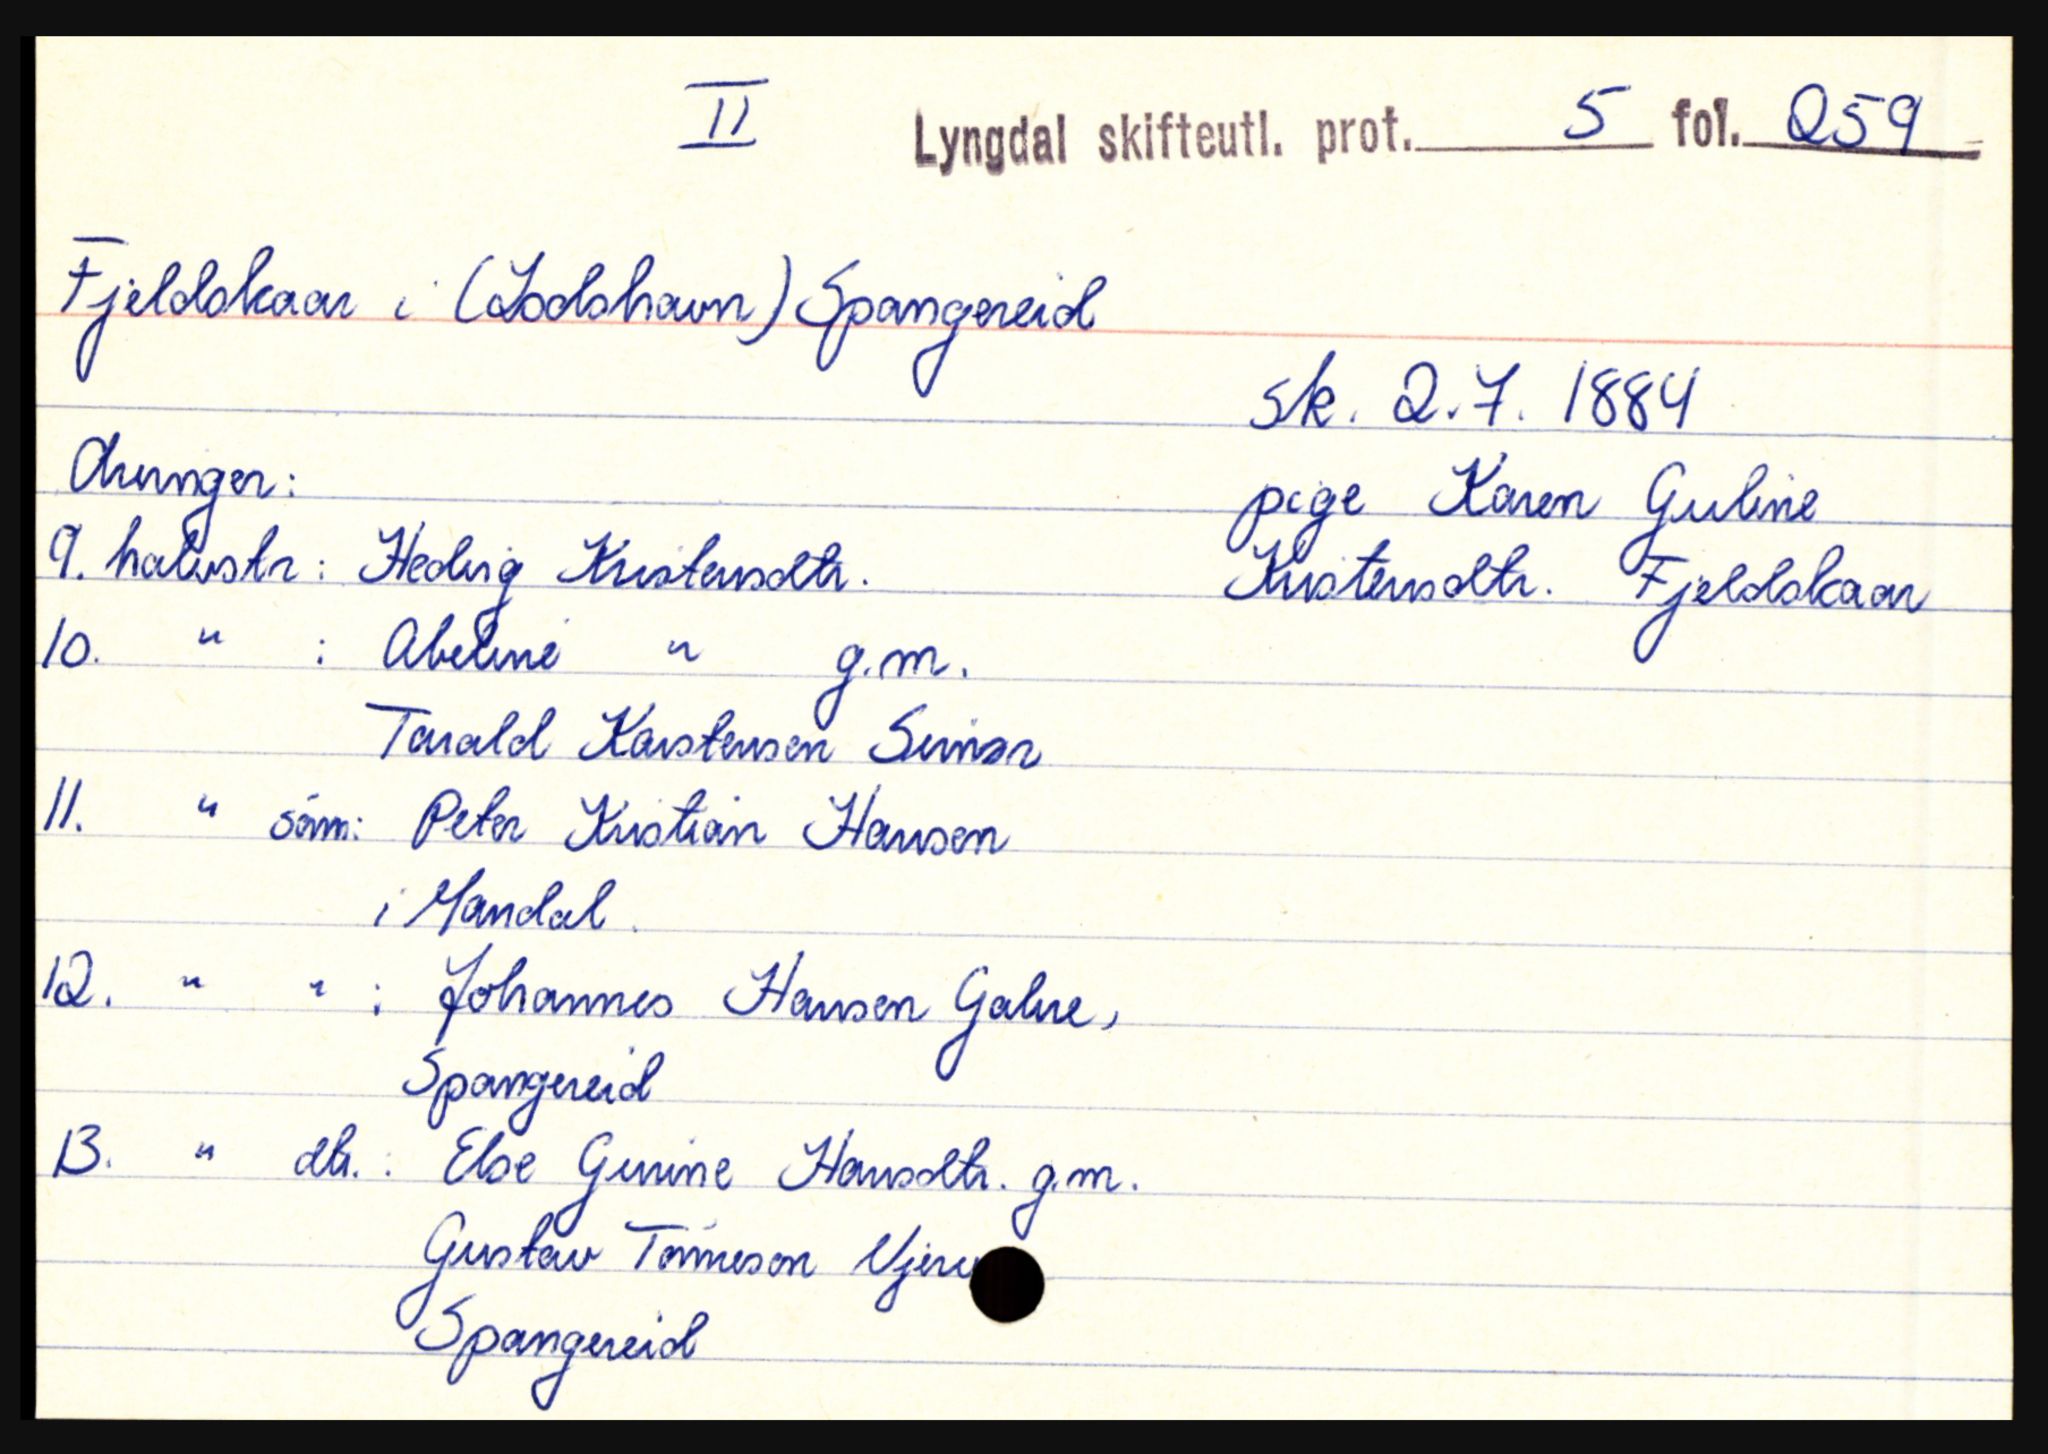 II Lyngdal skifteutl. prot. 5 fol. 259
Fjeldskaar i (Lodshavn) Spangereid
sk. 2.7. 1884
Arvinger:
pige Karen Guline
Kristensdtr. Fjeldskaar
9. halvstr: Hedvig Kristensdtr.
10. " : Abeline " g.m.
Tarald Karstensen
11. " søn: Peter Kristian Hansen
i Mandal.
12. " " : Johannes Hansen Gahre,
Spangereid
13. " dtr. : Else Gurine Hansdtr. g.m.
Gustav Tønneson
Spangereid